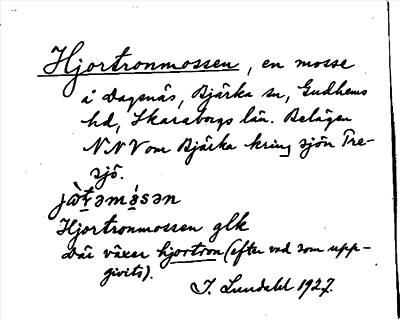 Hjortronmossen, en mosse
å Dagsnäs, Bjärka sn, Gudhems
hd, Skaraborgs län. Belägen
NNV om Bjärka kring sjön Tre-
sjö.
Hjortronmossen glk
Där växer hjortron (efter vad som upp-
givits).
J. Lundahl 1927.